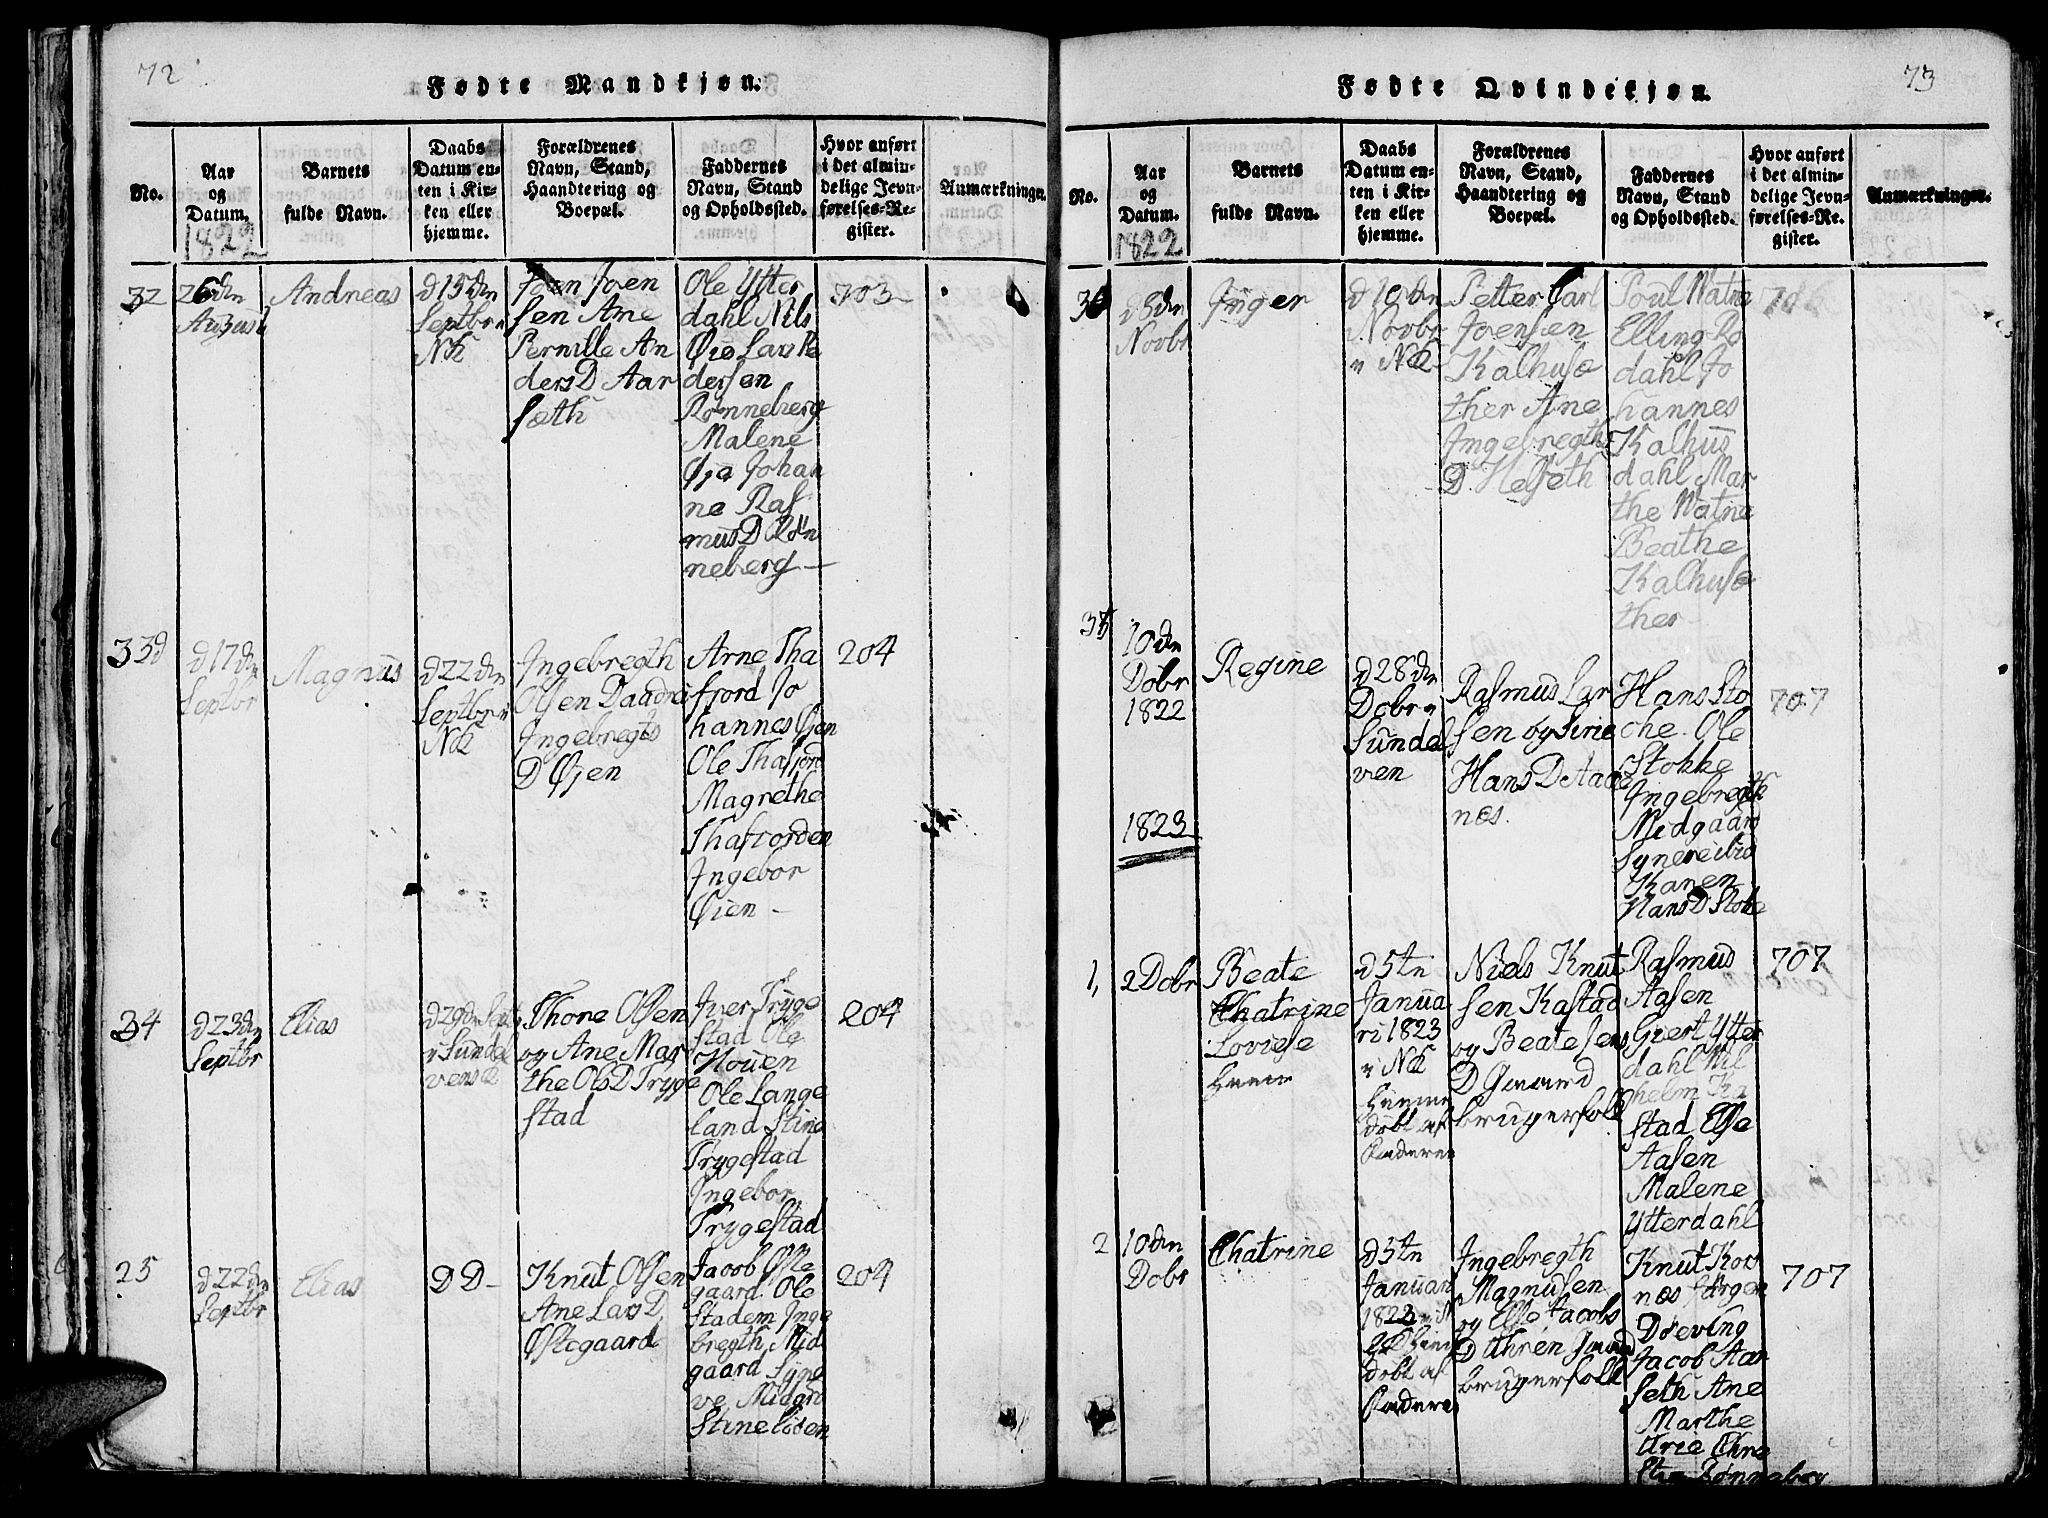 72
Fødte Mandkjøn.
No.
Aar
og
Datum.
1822
Barnets
fulde Navn.
Daabs
Datum en-
ten i Kir-
ken eller
hjemme.
Forældrenes
Navn, Stand,
Haandtering og
Boepæl.
Faddernes
Navn, Stand
og Opholdssted.
Hvor anført
i det almin-
delige Jevn-
førelses-Re-
gister.
Anmærkninger.
32
26dn
August
Andreas
d 15dn
Septbr i
NK
Joen Joen
sen Ane
Pernille An
ders D Aar
sæth
Ole Ytter
dahl Nils
Øie Lars Pe
dersen
Rønneberg
Malene
Øje Johan
ne Ras
mus D Røn
neberg
703
33
d 17dn
Septbr
Magnus
d 22dn
Septbr i
NK
Ingebregth
Olsen
Ingebregts
D Øjen
Arne Tha
fjord Jo
hannes Øjen
Ole Thafjord
Magrethe
Thafjorden
Ingebor
Øien
204
34
d 23dn
Septbr
Elias
d 29dn Sept
i Sundel
vens K
Thore Olsen
og Ane Mar
the Ols D Tryge
stad
Iver Tryge
stad Ole
Houen
Ole Lange
land Stine
Trygestad
Ingebor
Trygestad
204
25
d 22dn
Septbr
Elias
D D
Knut Olsen
Ane Lars D
Østegaard
Jacob Øste
gaard Ole
Stadem Inge
bregth Mid
gaard Syne
ve Midgaard
Stine
204
73
Fødte Qvindekjøn.
No.
Aar
og
Datum.
1822
Barnets
fulde Navn.
Daabs
Datum en-
ten i Kir-
ken eller
hjemme.
Forældrenes
Navn, Stand,
Haandtering og
Boepæl.
Faddernes
Navn, Stand
og Opholdssted.
Hvor anført
i det almin-
delige Jevn-
førelses-Re-
gister.
Anmærkninger.
d 8dn
Novbr
Inger
d 10dn
Novbr
i NK
Petter Carl
Joensen
Kalhusæ
ther Ane
Ingebregth
D. Helseth
Poul Watne
Elling Rø
dahl Jo
hannes
Kalhus
dahl Mar
the Watne
Beathe
Kalhusæ
ther
706
10dn
Dobr
1822
Regine
d 28dn
Dobr i
Sundel
ven
Rasmus Lar
sen og Sirie
Hans D Aar
nes.
Hans Sto
che. Ole
Stokke
Ingebregth
Midgaard
Karen
Hans D Stoke
707
1823
1,
2 Dobr
Beate
Chatrine
Loviese
d 5tn
Janua
ri 1823
i NK
Hiemme
døbt af
Niels Knut
sen Kastad
og Beate Jens
D Gaard
brugerfolk
Rasmus
Aasen
Giert Ytter
dahl Wil
helm Ka
stad Else
Aasen
Malene
Ytterdahl
707
2
10dn
Dobr
Chatrine
d 5tn
Januari
1823
døbt af
Ingebregth
Magnusen
og Else Jacobs
D Uhren Gaard
brugerfolk
Knut Kors
næs Jørgen
Døeving
Jacob Aar
seth Ane
Marthe
707